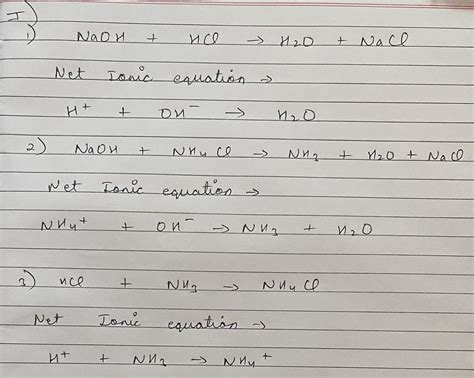 I)
1) NaOH + HCl → H2O + NaCl
Net Ionic equation →
H+ + OH- → H2O
2) NaOH + NH4Cl → NH3 + H2O + NaCl
Net Ionic equation →
NH4+ + OH- → NH3 + H2O
3) HCl + NH3 → NH4Cl
Net Ionic equation →
H+ + NH3 → NH4+